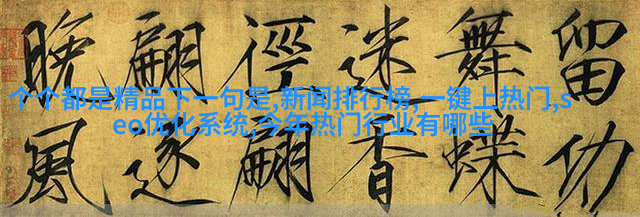 留功
舞蝶
迷香
徑翩
翩逐
晚風
个个都是精品下一句是,新闻排行榜,一键上热门,s
eo优化系统,今年热门行业有哪些